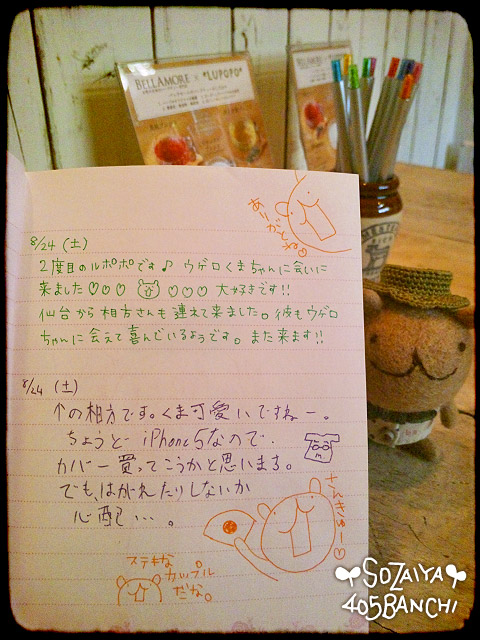 BELLAMORE × "LUPOPO"
ありがとね♡
8/24 (土)
2度目のルポポです♪ ウゲロくまちゃんに会いに
来ました♡♡♡ ♡♡♡ 大好きです!!
仙台から相方さんも連れて来ました。彼もウゲロ
ちゃんに会えて喜んでいるようです。また来ます!!
8/24 (土)
↑の相方です。くま可愛いですねー。
ちょうど iPhone5なので、
カバー買ってこうかと思います。
でも、はがれたりしないか
心配…。
さんきゅー♡
ステキな
カップル
だな。
SOZAIYA
405BANCHI